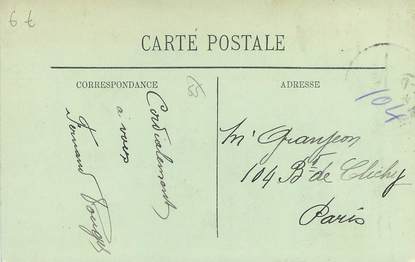 6 €
CARTE POSTALE
CORRESPONDANCE
ADRESSE
Cordialement
à vous
Fernand
104
Mr Granjeon
104 Bd de Clichy
Paris